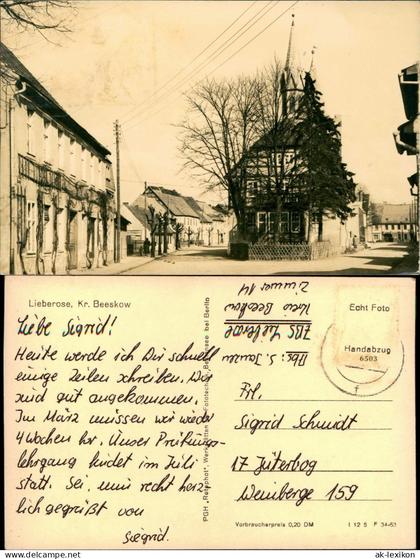 Lieberose, Kr. Beeskow
Liebe Sigrid!
Heute werde ich Dir schnell
einige Zeilen schreiben. Wir
sind gut angekommen.
Im März müssen wir wieder
4 Wochen hr. Unser Prüfungs-
lehrgang findet im Juli
statt. Sei nun recht herz-
lich gegrüßt von
Siegrid.
PGH „Retuphot", Werkstätten
bei Berlin
Abs: S.
ZBS Lieberose
Kreis Beeskow
Zimmer 14
Echt Foto
Handabzug
6503
Frl.
Sigrid Schmidt
17 Jüterbog
Weinberge 159
Verbraucherpreis 0,20 DM
I 12 5 F 34-63
www.ak-ansichtskarten.de
ak-lexikon.com